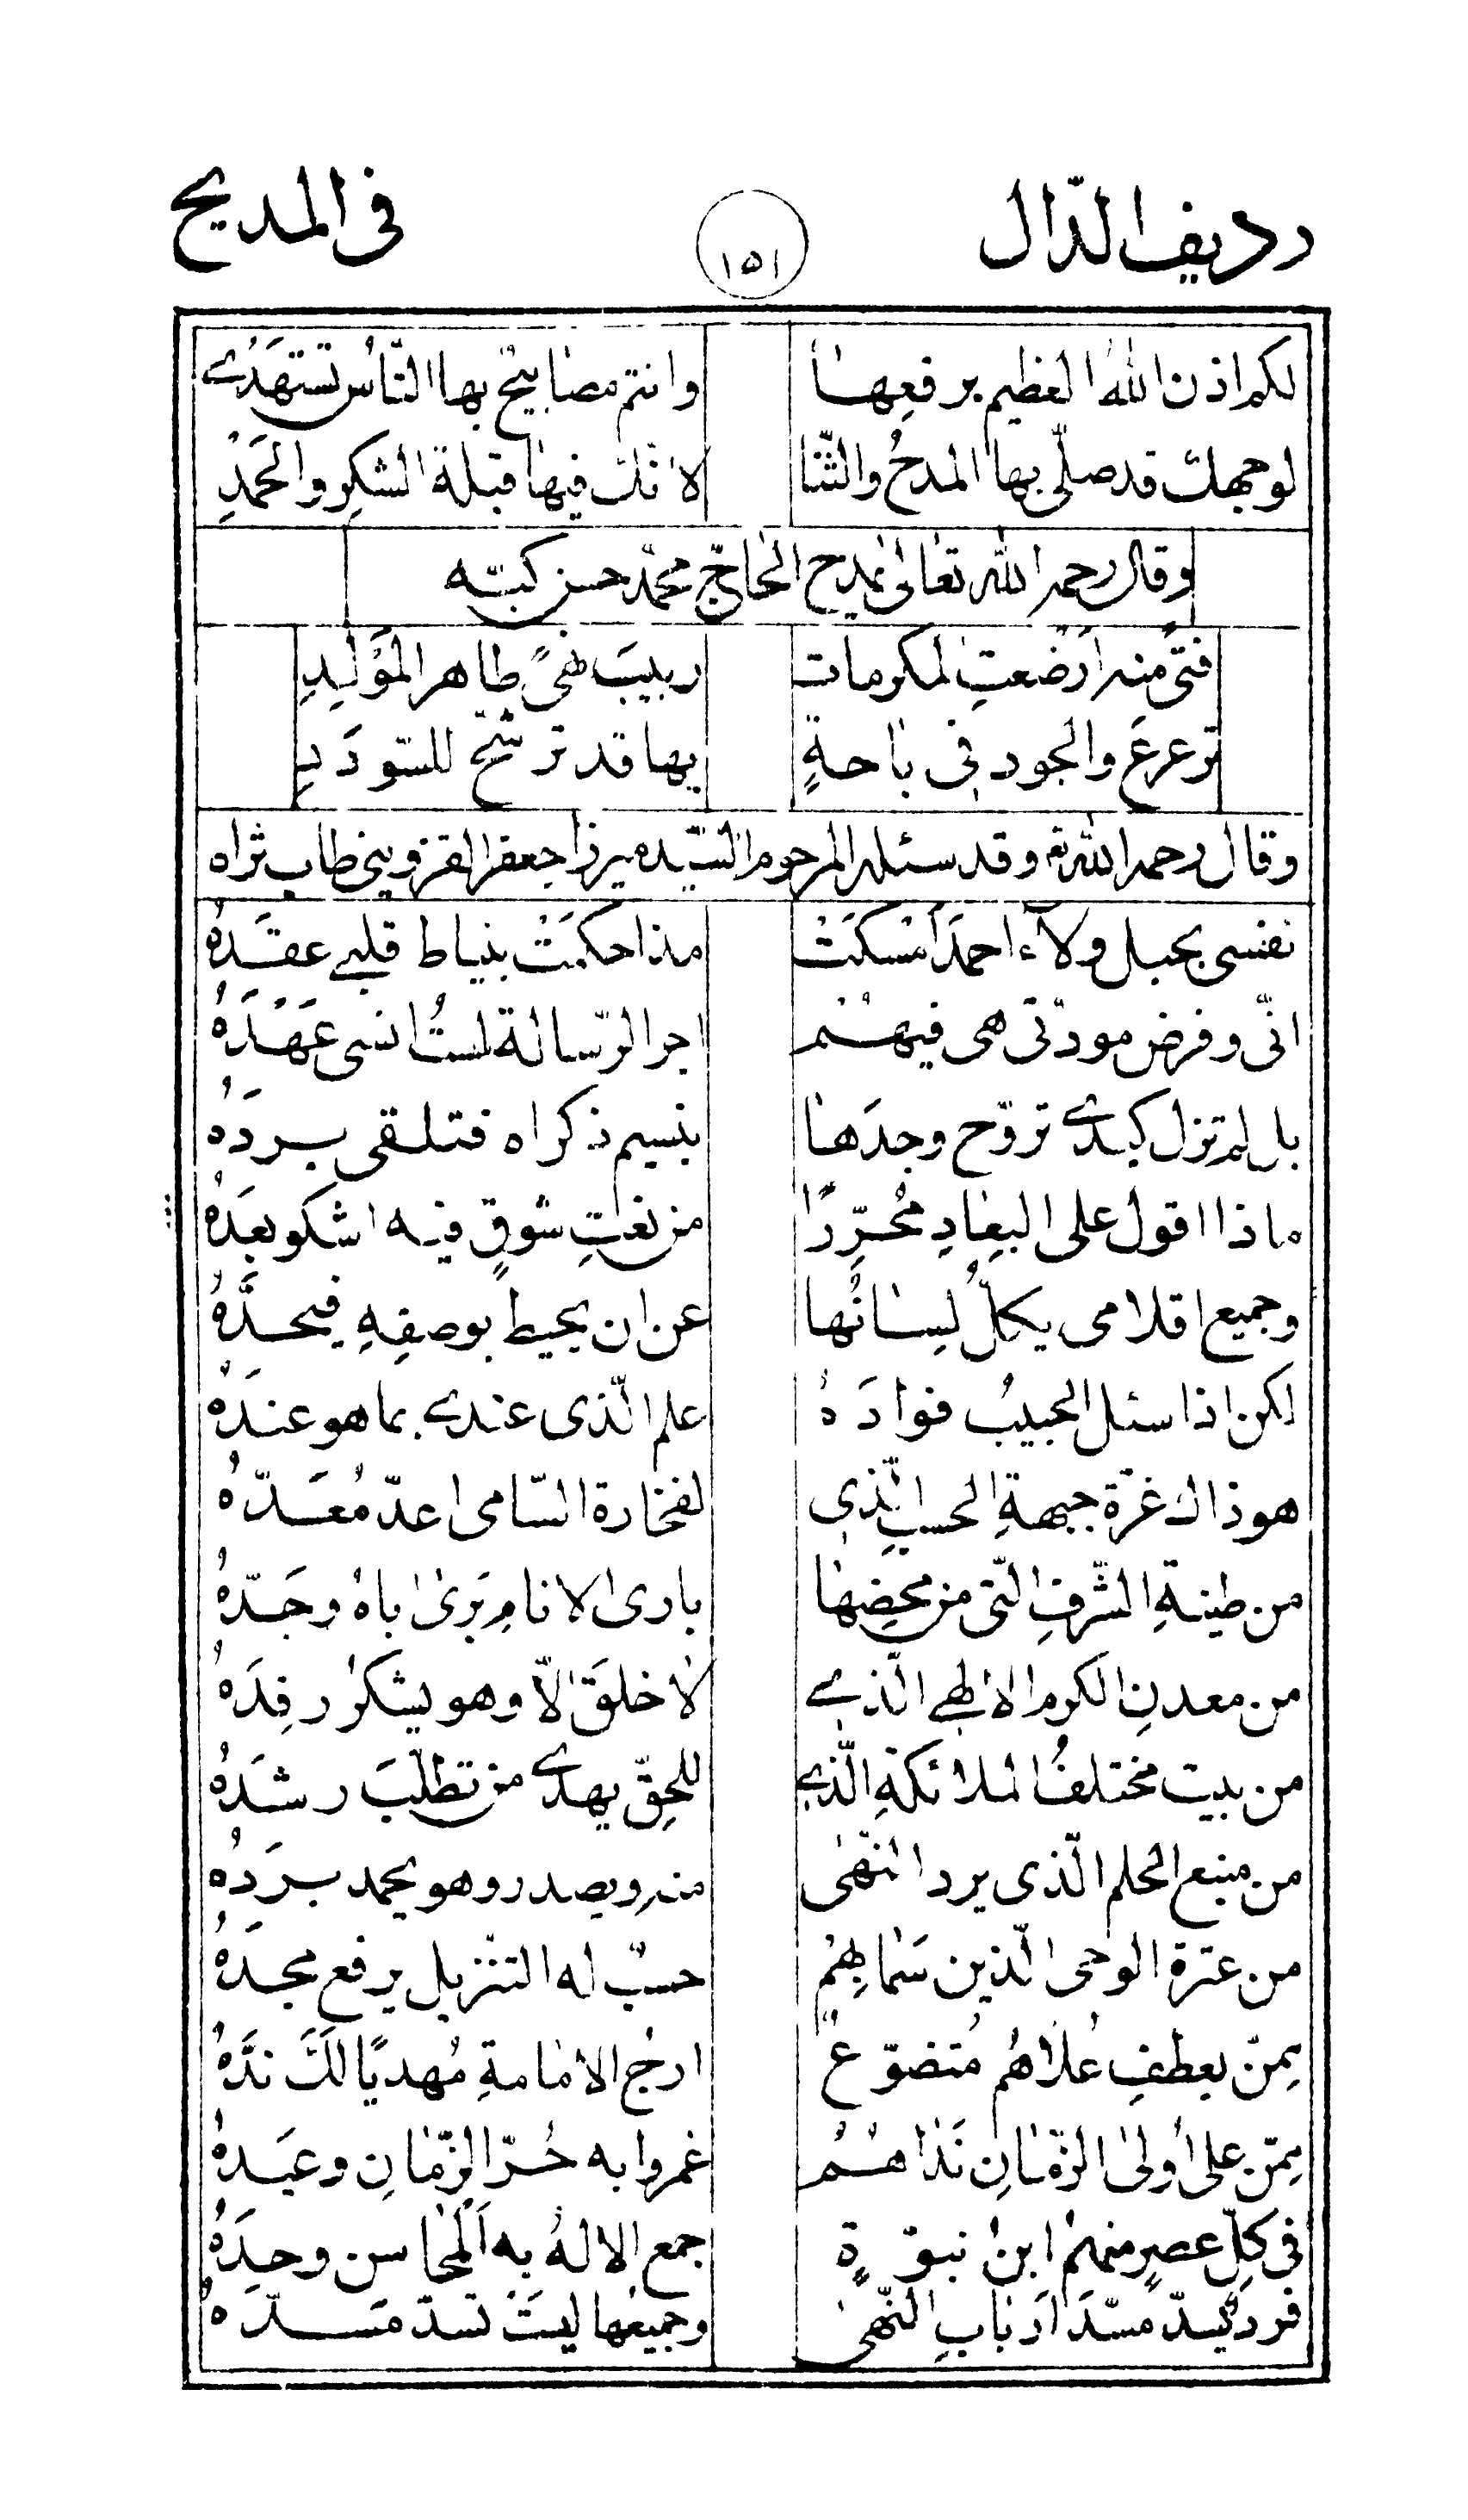 رديف الدّال ١٥١ فى المديح
لكم اذن اللّٰه العظيم برفعِها وانتم مصابيحٌ بها النّاسُ تستهَدْى
لوجهك قد صلّى بها المدحُ والثّنا لانّك فيها قبلة الشكرِ والحَمْدِ
وقال رحمه اللّٰه تعالى يمدح الحاجّ محمّد حسن كبّه
فتىً منه ارَضَعتِ المكرمات ربيبَ نهىً طاهر المَوْلِدِ
ترعرعَ والجود فى باحةٍ بها قد ترشّح للسّودَدِ
وقال رحمه اللّٰه تع وقد سئله المرحوم السّيّد ميرزا جعفر القزوينى طاب ثراه
نفسى بحبل ولآء احمدَ امْسَكَتْ مذ احكمَتْ بنياط قلبى عقدَهُ
انّى وفرض مودّتى هى فيهُمْ اجر الرّسالة لستُ انسى عَهْدَهُ
بل لم تزل كبدى تروّح وجدَها بنسيم ذكراه فتلقى بردَهُ
ماذا اقول على البِعادِ مُحرّرًا من نعتِ شوقٍ فيه اشكو بعدَهُ
وجميع اقلامى يكلُّ لِسانُها عن ان يحيط بوصفِهِ فيحدَّهُ
لكن اذا سئل الحبيبُ فوادَهُ علم الّذى عندى بما هو عندَهُ
هو ذاك غرّة جبهةِ الحسبِ الّذى لفخاره السّامى اعدّ مُعَدّهُ
من طينةِ الشّرفِ الّتى من محضِها بارى الانامِ بَرىٰ اباهُ وجَدّهُ
من معدنِ الكرم الابطحى الّذى لا خلقَ الّا وهو يشكر رفِدَهُ
من بيت مختلفُ الملائكةِ الّذى للحقّ يهدى من تطلّبَ رشدَهُ
من منبع الحلم الّذى يرد النّهىٰ منه ويصدر وهو يحمد بردَهُ
من عترة الوحى الّذين سَما بِهِمْ حسبٌ له التنزيل يرفع مجدَهُ
مِمّن بعطفِ عُلاهُم مُتضوّعٌ ارجُ الامامةِ مُهديًا لكَ ندَّهُ
مِمّن على اُولى الزّمانِ نَداهُمْ غمروا به حُرّ الزّمانِ وعبدَهُ
فى كلّ عصرٍ منهم ابن نبوّةٍ جمع الالهُ به المَحاسن وحدَهُ
فردٌ يسدّ مسّدَ اَربابِ النّهىٰ وجميعُها ليسَتْ تسدّ مَسدّهُ